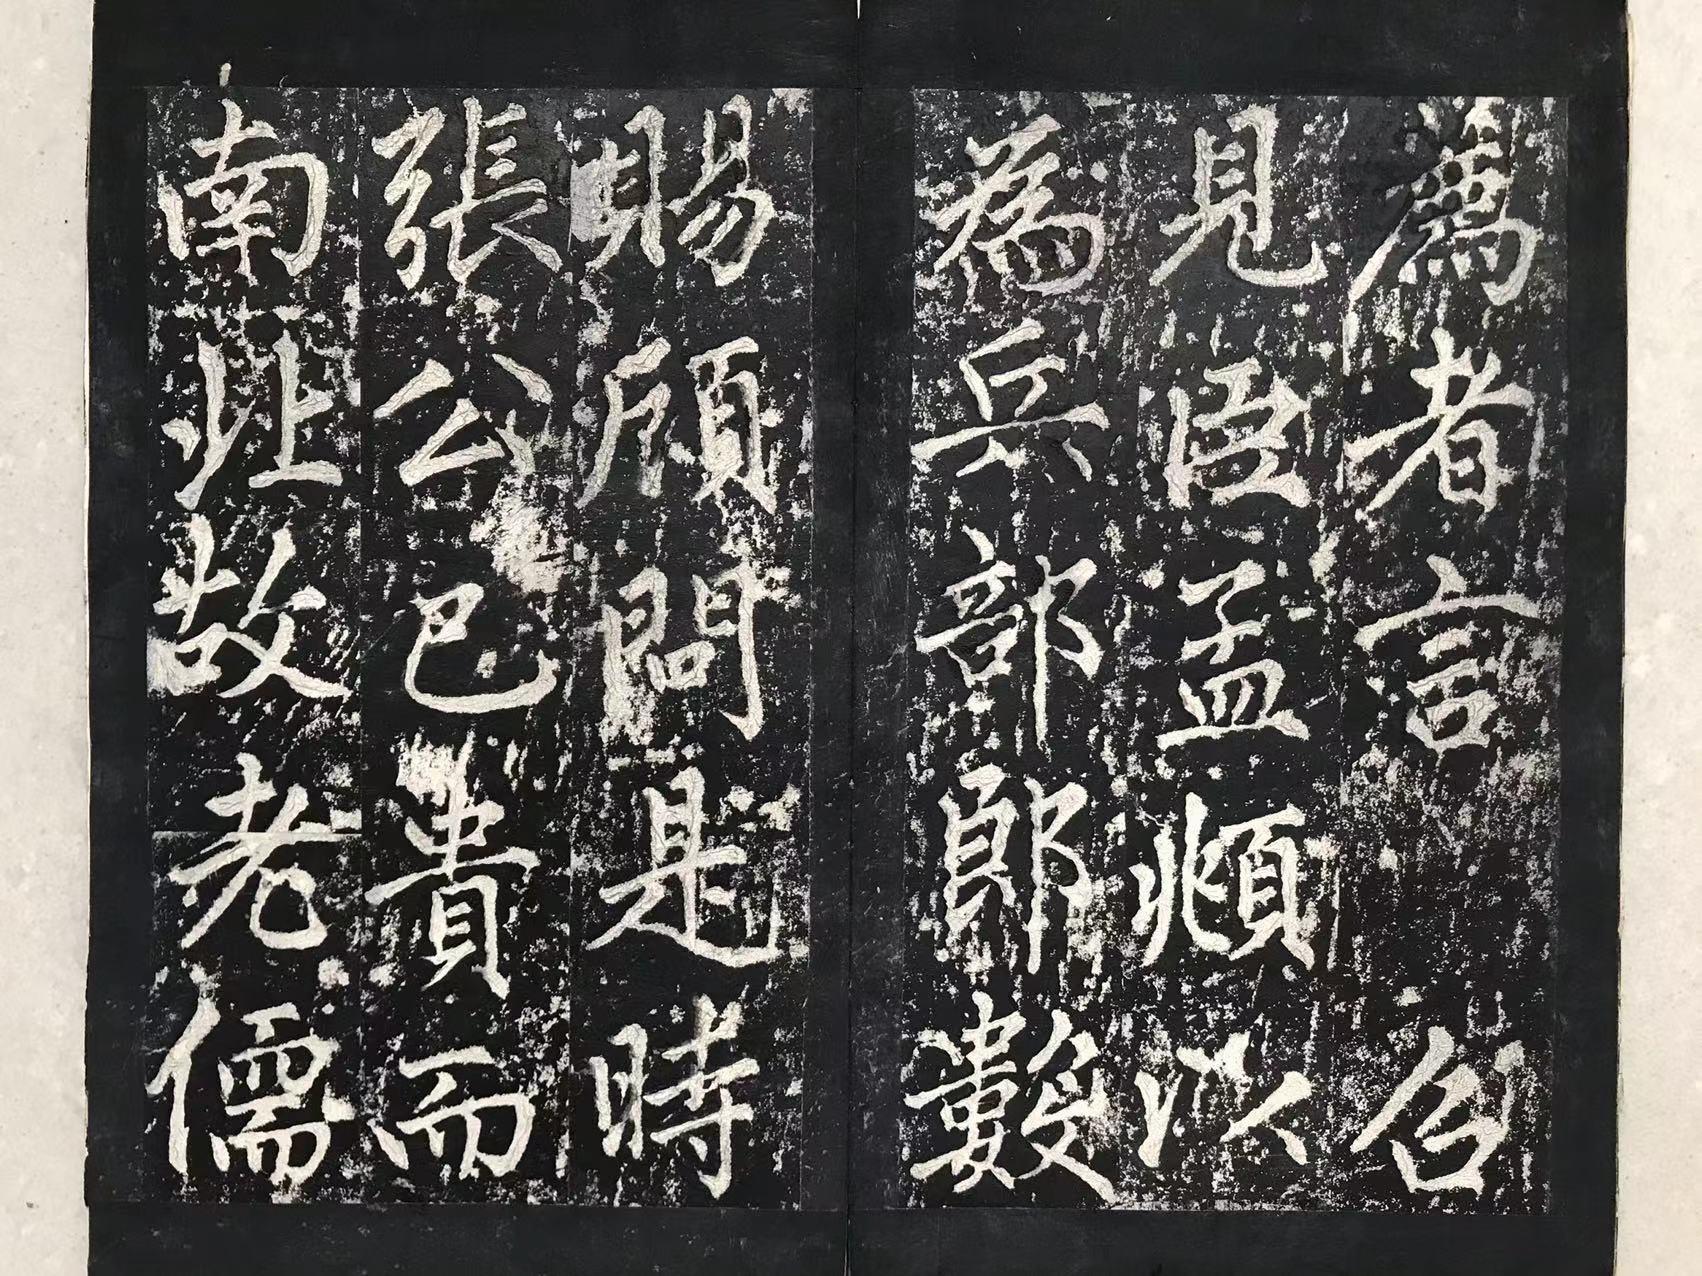 薦者言 召
見臣孟頫以
為兵部郎數
賜顧問是時
張公已貴而
南北故老儒